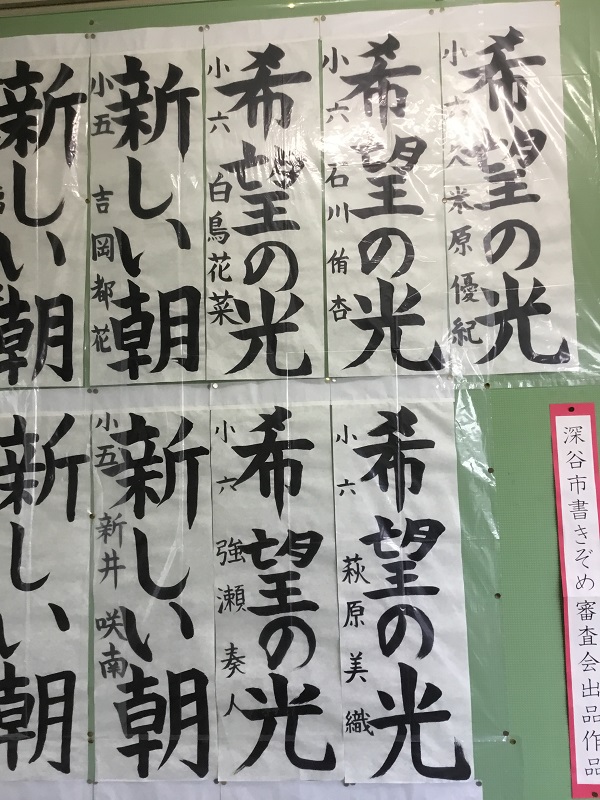 深谷市書きぞめ審査会出品作品
希望の光
小六 久米原優紀
希望の光
小六 石川侑杏
希望の光
小六 白鳥花菜
新しい朝
小五 吉岡都花
新しい朝
希望の光
小六 萩原美織
希望の光
小六 強瀬奏人
新しい朝
小五 新井咲南
新しい朝